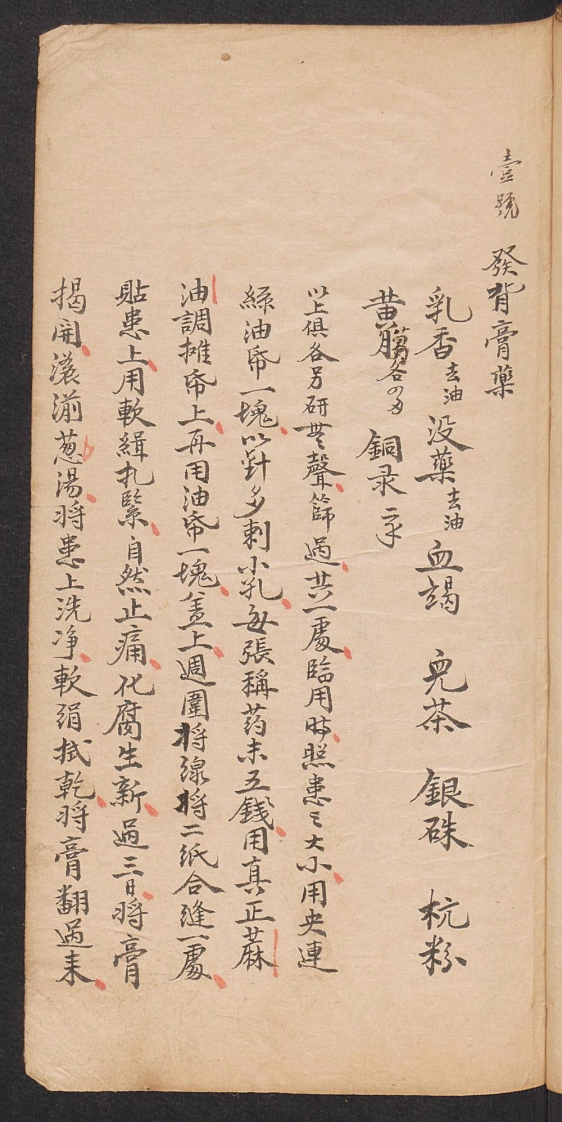 壹號 發背膏藥
乳香去油 没藥去油 血竭 兒茶 銀硃 杭粉
黄 各 銅录
以上俱各另研無聲篩過共一處臨用時照患之大小用夾連
絲油帋一塊以針多刺小孔每張稱药末五錢用真正蔴
油調摊帋上再用油帋一塊盖上週圍将線将二纸合縫一處
貼患上用軟緝扎緊自然止痛化腐生新過三日将膏
揭開滚湔葱湯将患上洗净軟絹拭乾将膏翻過来